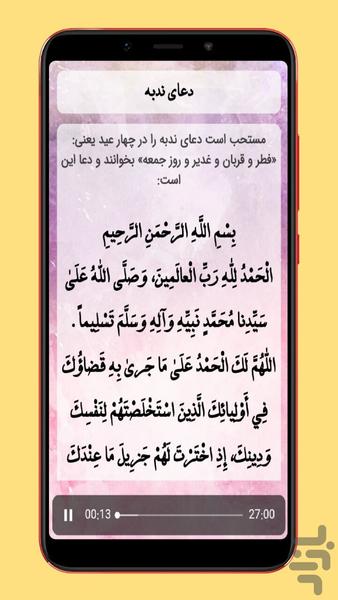 دعای ندبه
مستحب است دعای ندبه را در چهار عید یعنی:
«فطر و قربان و غدیر و روز جمعه» بخوانند و دعا این
است:
بِسْمِ اللَّهِ الرَّحْمَنِ الرَّحِيمِ
الْحَمْدُ لِلَّهِ رَبِّ الْعَالَمِينَ، وَصَلَّى اللَّهُ عَلَىٰ
سَيِّدِنا مُحَمَّدٍ نَبِيِّهِ وَآلِهِ وَسَلَّمَ تَسْلِيماً .
اللّٰهُمَّ لَكَ الْحَمْدُ عَلَىٰ مَا جَرىٰ بِهِ قَضاؤُكَ
فِي أَوْلِيائِكَ الَّذِينَ اسْتَخْلَصْتَهُمْ لِنَفْسِكَ
وَدِينِكَ، إِذِ اخْتَرْتَ لَهُمْ جَزِيلَ مَا عِنْدَكَ
00:13 27:00
بازار